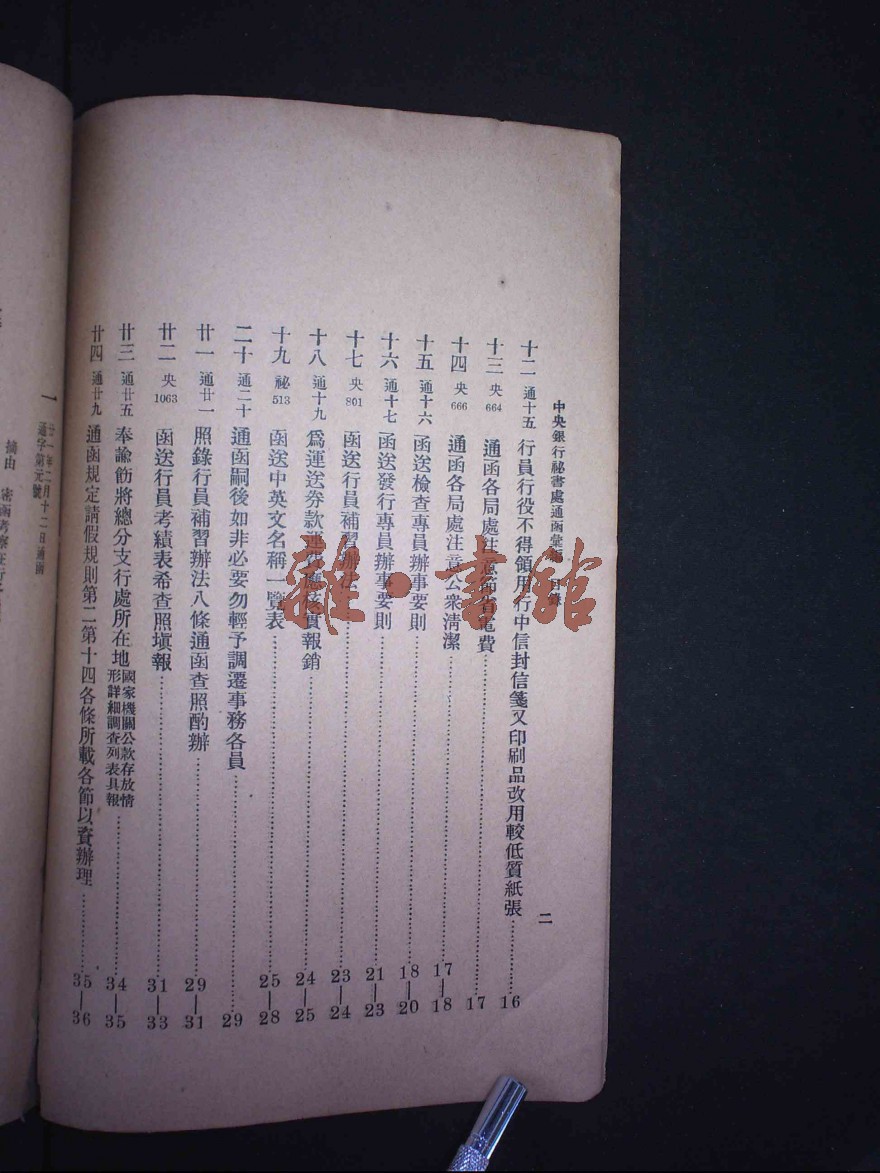 中央銀行祕書處通函彙編 目錄
二
十二 通十五 行員行役不得領用行中信封信箋又印刷品改用較低質紙張 16
十三 央664 通函各局處注意節省電費 17
十四 央666 通函各局處注意公衆淸潔 17—18
十五 通十六 函送檢查專員辦事要則 18—20
十六 通十七 函送發行專員辦事要則 21—23
十七 央801 函送行員補習辦法 23—24
十八 通十九 爲運送券款運費應核實報銷 24—25
十九 祕513 函送中英文名稱一覽表 25—28
二十 通二十 通函嗣後如非必要勿輕予調遷事務各員 29
廿一 通廿一 照錄行員補習辦法八條通函查照酌辦 29—31
廿二 央1063 函送行員考績表希查照塡報 31—33
廿三 通廿五 奉諭飭將總分支行處所在地國家機關公款存放情形詳細調查列表具報 34—35
廿四 通廿九 通函規定請假規則第二第十四各條所載各節以資辦理 35—36
一 廿一年二月十二日通函
通字第元號
摘由 密函考察在行
雜·書館